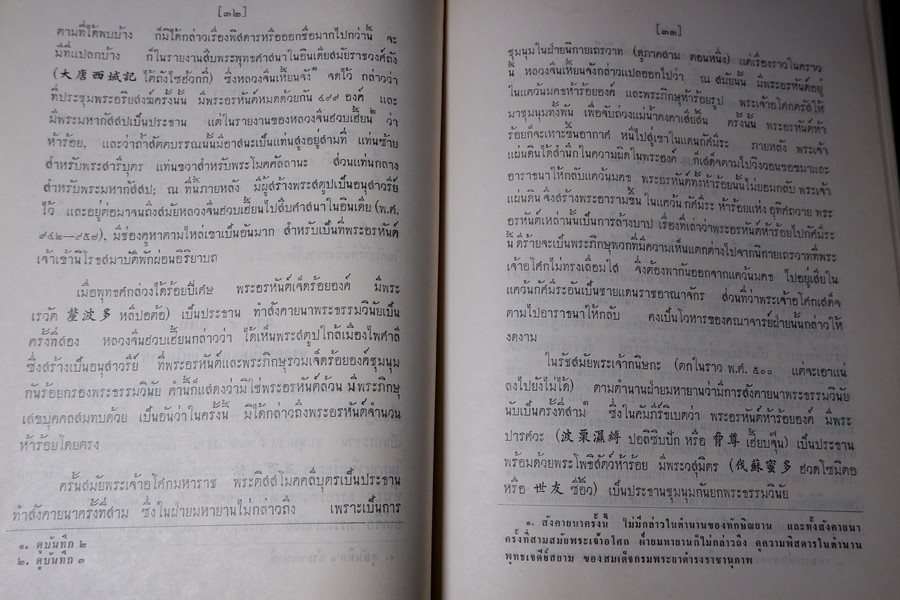 [๓๒]
ตามที่ได้พบบ้าง ก็มิได้กล่าวเรื่องพิสดารหรือออกชื่อมากไปกว่านี้ จะ
มีที่แปลกบ้าง ก็ในรายงานสืบพระพุทธศาสนาในอินเดียสมัยราชวงศ์ถัง
(大唐西域記 ไต้ถังไซฮั้วกกี่) ซึ่งหลวงจีนเหี้ยนจัง จดไว้ กล่าวว่า
ที่ประชุมพระอริยสงฆ์ครั้งนั้น มีพระอรหันต์หมดด้วยกัน ๔๙๙ องค์ และ
มีพระมหากัสสปเป็นประธาน แต่ในรายงานของหลวงจีนฮวบเฮี้ยน ว่า
ห้าร้อย, และว่าถ้ำสัตตบรรณนั้นมีอาสนะเป็นแท่นสูงอยู่สามที่ แท่นซ้าย
สำหรับพระสารีบุตร แท่นขวาสำหรับพระโมคคัลลานะ ส่วนแท่นกลาง
สำหรับพระมหากัสสป; ณ ที่นั้นภายหลัง มีผู้สร้างพระสตูปเป็นอนุสาวรีย์
ไว้ และอยู่ต่อมาจนถึงสมัยหลวงจีนฮวบเฮี้ยนไปสืบศาสนาในอินเดีย (พ.ศ.
๙๔๒—๙๕๗), มีช่องคูหาตามไหล่เขาเป็นอันมาก สำหรับเป็นที่พระอรหันต์
เจ้าเข้านิโรธสมาบัติพักผ่อนอิริยาบถ
เมื่อพุทธศักล่วงได้ร้อยปีเศษ พระอรหันต์เจ็ดร้อยองค์ มีพระ
เรวัต 釐波多 หลีปอต้อ) เป็นประธาน ทำสังคายนาพระธรรมวินัยเป็น
ครั้งที่สอง หลวงจีนฮวบเฮี้ยนกล่าวว่า ได้เห็นพระสตูปใกล้เมืองไพศาลี
ซึ่งสร้างเป็นอนุสาวรีย์ ที่พระอรหันต์และพระภิกษุรวมเจ็ดร้อยองค์ชุมนุม
กันร้อยกรองพระธรรมวินัย คำนี้ก็แสดงว่ามิใช่พระอรหันต์ล้วน มีพระภิกษุ
เสขบุคคลสมทบด้วย เป็นอันว่าในครั้งนี้ มิได้กล่าวถึงพระอรหันต์จำนวน
ห้าร้อยโดยตรง
ครั้นสมัยพระเจ้าอโศกมหาราช พระติสสโมคคลีบุตรเป็นประธาน
ทำสังคายนาครั้งที่สาม ซึ่งในฝ่ายมหายานไม่กล่าวถึง เพราะเป็นการ
๑. ดูบันทึก ๒
๒. ดูบันทึก ๓
[๓๓]
ชุมนุมในฝ่ายนิกายเถรวาท (ดูภาคสาม ตอนหนึ่ง) แต่เรื่องราวในคราว
นี้ หลวงจีนเหี้ยนจังกล่าวแปลออกไปว่า ณ สมัยนั้น มีพระอรหันต์อยู่
ในแคว้นมคธห้าร้อยองค์ และพระภิกษุห้าร้อยรูป พระเจ้าอโศกตรัสให้
มาชุมนุมทั้งพัน เพื่อจับถ่วงแม่น้ำคงคาเสียสิ้น ครั้งนั้น พระอรหันต์ห้า
ร้อยก็จะเหาะขึ้นอากาศ หนีไปสู่เขาในแดนกัศมีระ ภายหลัง พระเจ้า
แผ่นดินได้สำนึกในความผิดในพระองค์ ก็เสด็จตามไปวิงวอนขอขมาและ
อาราธนาให้กลับแคว้นมคธ พระอรหันต์ทั้งห้าร้อยนั้นไม่ยอมกลับ พระเจ้า
แผ่นดิน จึงสร้างพระอารามขึ้น ในแคว้น กัศมีระ ห้าร้อยแห่ง อุทิศถวาย พระ
อรหันต์เหล่านั้นเป็นการล้างบาป เรื่องที่เล่าว่าพระอรหันต์ห้าร้อยไปกัศมีระ
นี้ ดีร้ายจะเป็นพระภิกษุพวกที่มีความเห็นแตกต่างไปจากนิกายเถรวาทที่พระ
เจ้าอโศกไม่ทรงเลื่อมใส จึงต้องพากันออกจากแคว้นมคธ ไปอยู่เสียใน
แคว้นกัศมีระอันเป็นชายแดนราชอาณาจักร ส่วนที่ว่าพระเจ้าอโศกเสด็จ
ตามไปอาราธนาให้กลับ คงเป็นโวหารของคณาจารย์ฝ่ายนั้นกล่าวให้
งดงาม
ในรัชสมัยพระเจ้ากนิษกะ (ตกในราว พ.ศ. ๕๐๐ แต่จะเอาแน่
ลงไปยังไม่ได้) ตามตำนานฝ่ายมหายานว่ามีการสังคายนาพระธรรมวินัย
นับเป็นครั้งที่สาม ซึ่งในคัมภีร์ธิเบตว่า พระอรหันต์ห้าร้อยองค์ มีพระ
ปารศวะ (波栗濕縛 ปอลิซิบปัก หรือ 脅尊 เฮี้ยบจุ๊น) เป็นประธาน
พร้อมด้วยพระโพธิสัตว์ห้าร้อย มีพระวสุมิตร (伐蘇蜜多 ฮวดโซมิตอ
หรือ 世友 ซี่อิ๊ว) เป็นประธานชุมนุมกันยกพระธรรมวินัย
๑. สังคายนาครั้งนี้ ไม่มีกล่าวในตำนานของทักษิณยาน และทั้งสังคายนา
ครั้งที่สามสมัยพระเจ้าอโศก ฝ่ายมหายานก็ไม่กล่าวถึง ดูความพิสดารในตำนาน
พุทธเจดีย์สยาม ของสมเด็จกรมพระยาดำรงราชานุภาพ